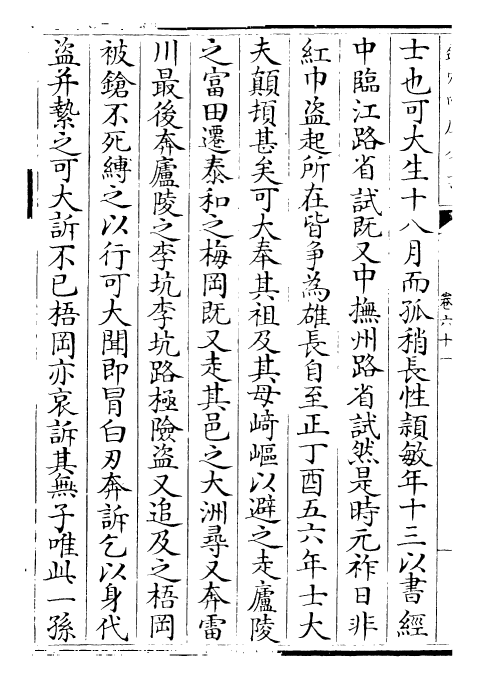 士也可大生十八月而孤稍長性穎敏年十三以書經
中臨江路省試既又中撫州路省試然是時元祚日非
紅巾盜起所在皆爭為雄長自至正丁酉五六年士大
夫顛頓甚矣可大奉其祖及其母﨑嶇以避之走廬陵
之富田遷泰和之梅岡既又走其邑之大洲尋又奔雷
川最後奔廬陵之李坑李坑路極險盜又追及之梧岡
被鎗不死縛之以行可大聞即冒白刃奔訴乞以身代
盜并縶之可大訴不已梧岡亦哀訴其無子唯此一孫
卷六十一